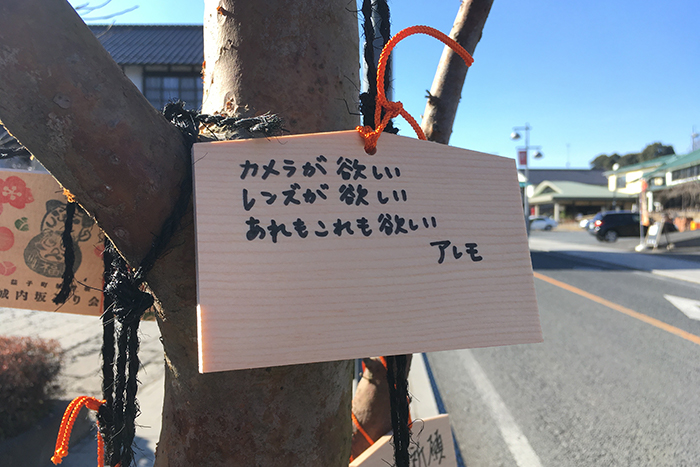 カメラが欲しい
レンズが欲しい
あれもこれも欲しい
アレモ
城内坂通り会
祈願